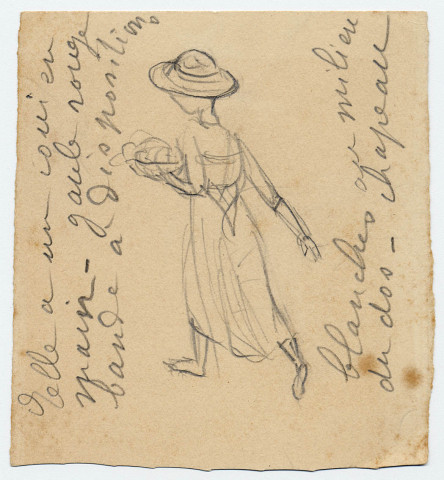 elle a un coui en
main - Jaule rouge
bande à disposition
blanches au milieu
du dos - chapeau